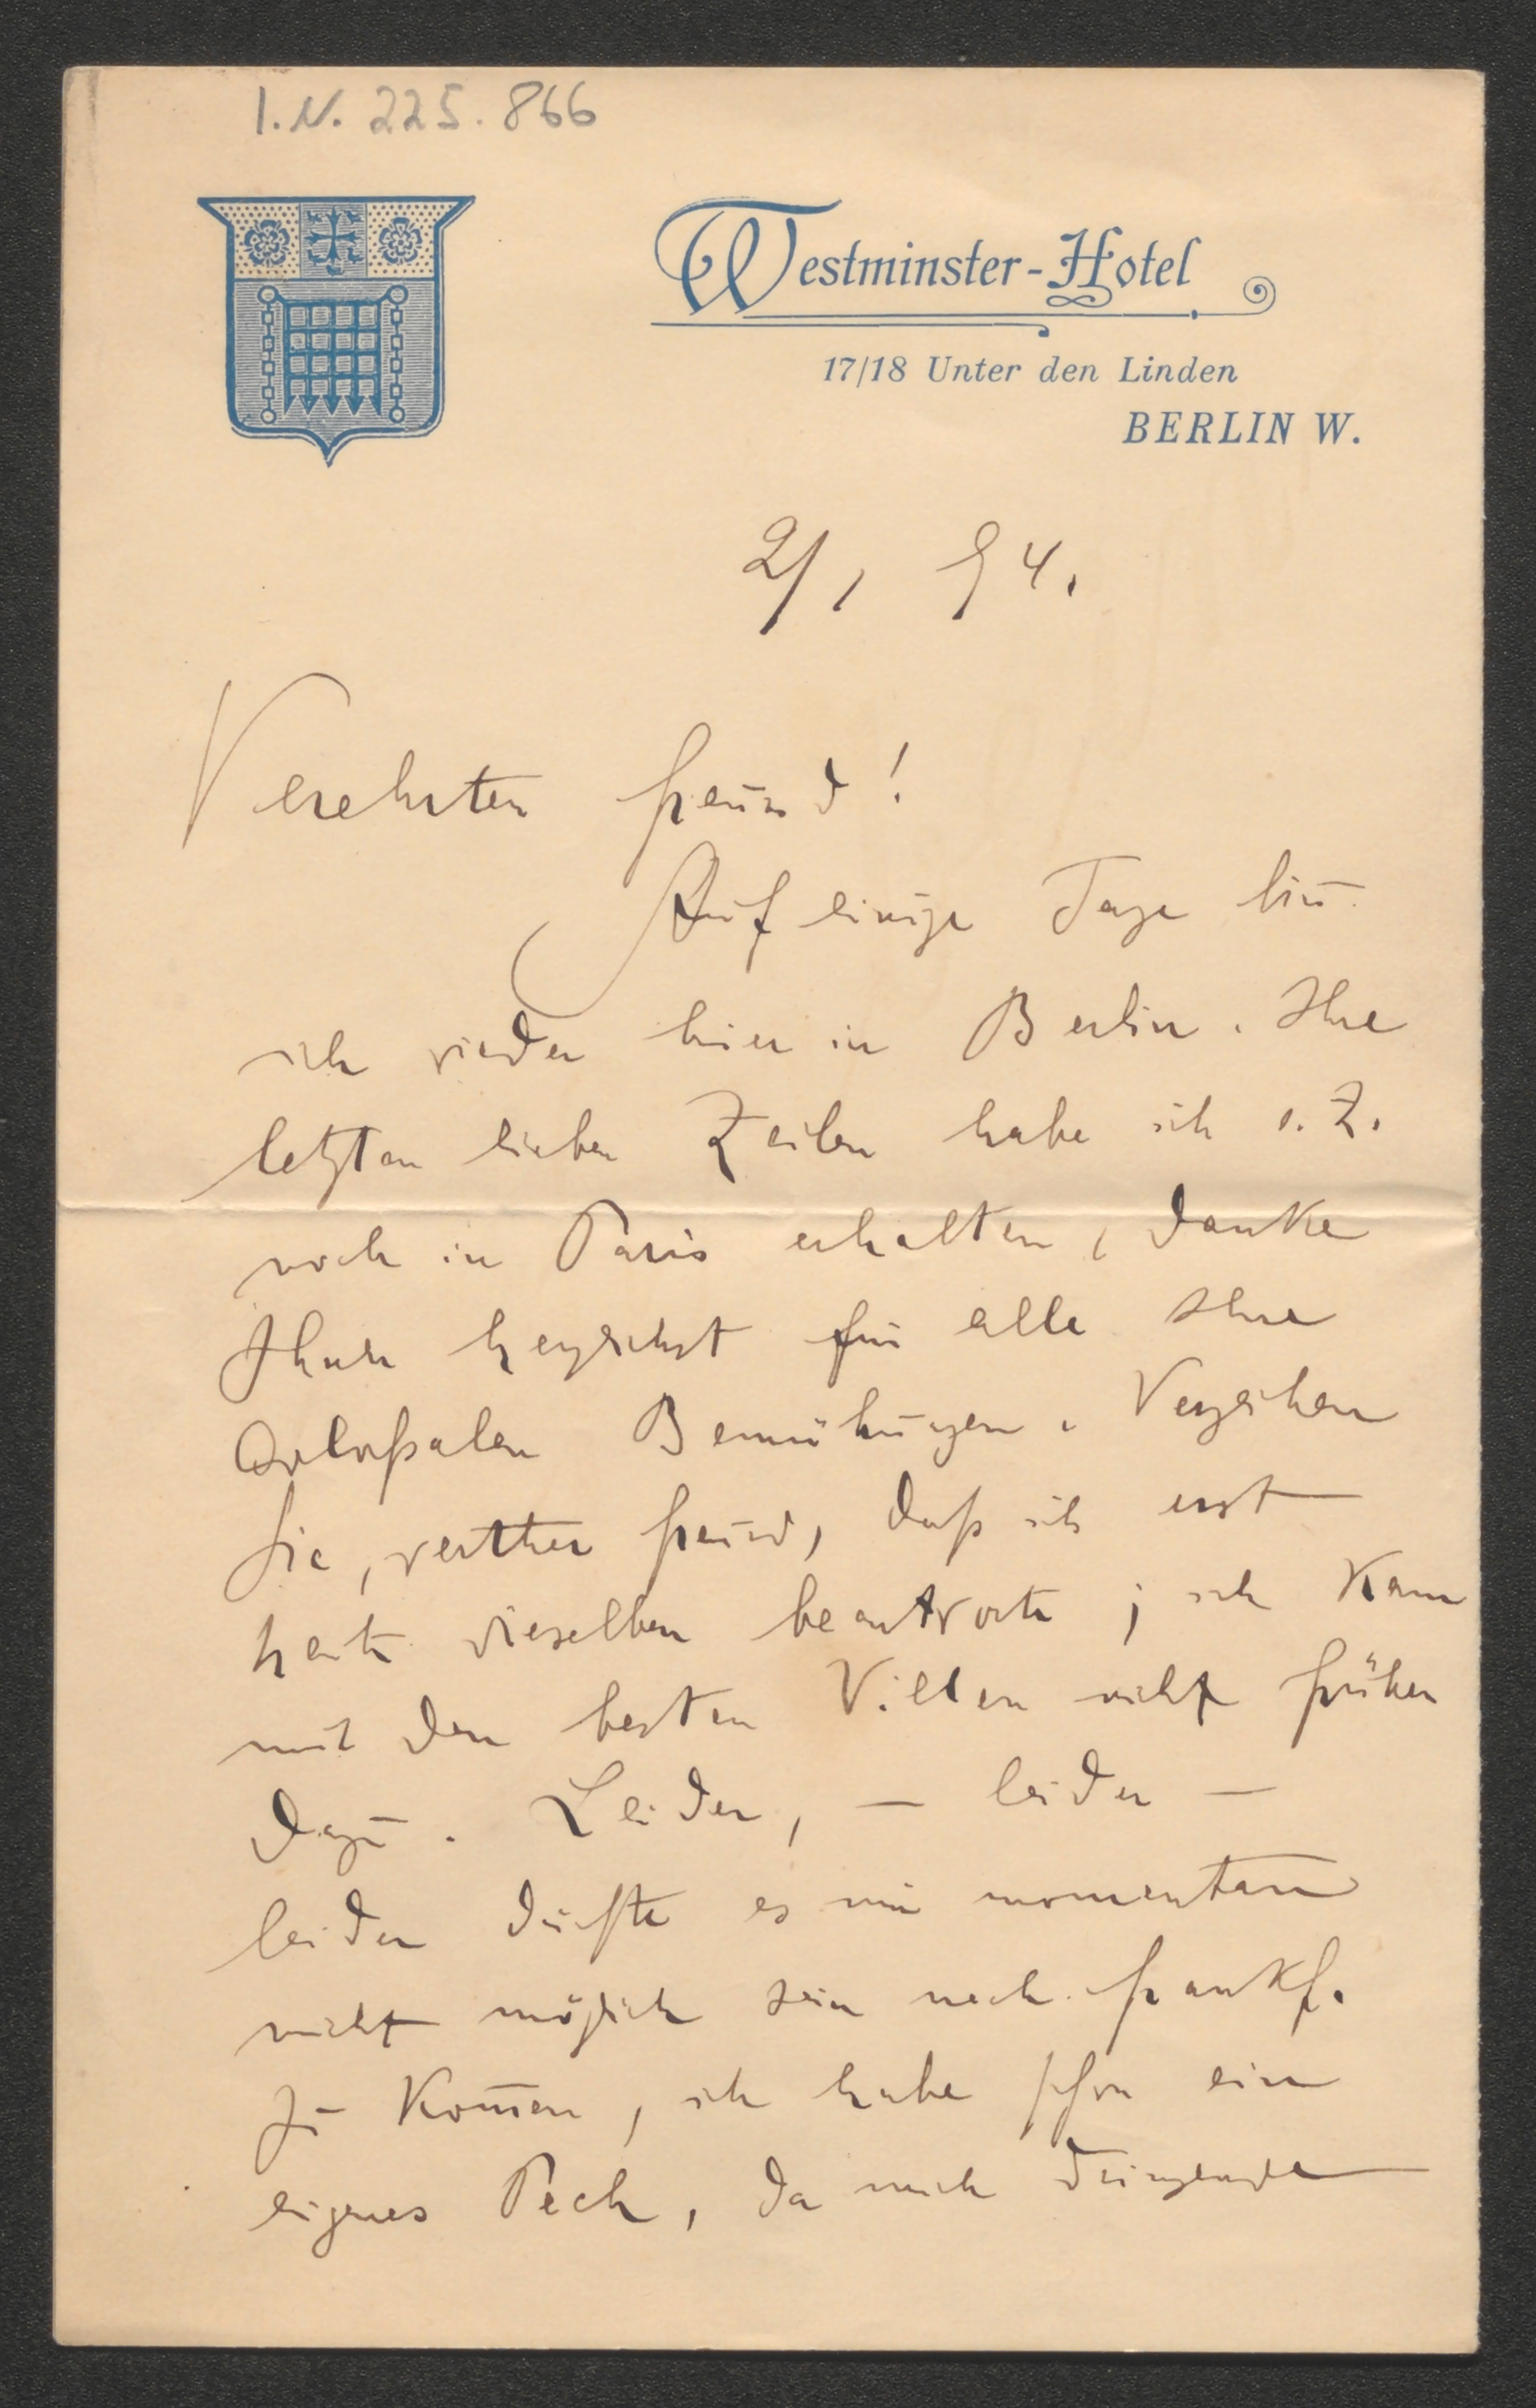 I.N. 225.866
Westminster-Hotel
17/18 Unter den Linden
BERLIN W.
2/1 94.
Verehrter Freund!
Auf einige Tage bin
ich wieder hier in Berlin. Ihre
letzten lieben Zeilen habe ich s. Z.
noch in Paris erhalten, danke
Ihnen herzlichst für alle Ihre
coloßalen Bemühungen. Verzeihen
Sie, werther Freund, daß ich erst
heute dieselben beantworte; ich kam
mit dem besten Willen nicht früher
dazu. Leider, – leider –
leider dürfte es mir momentan
nicht möglich sein nach Frankf.
zu kom̅en, ich habe schon ein
eigenes Pech, da mich dringende